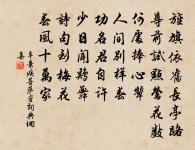 旌旗依舊長亭路
尊前試點鶯花數
何處捧心顰
人間別樣春
功名君自許
少日聞雞舞
詩句到梅花
春風十萬家
辛棄疾菩薩蠻詞典網
集